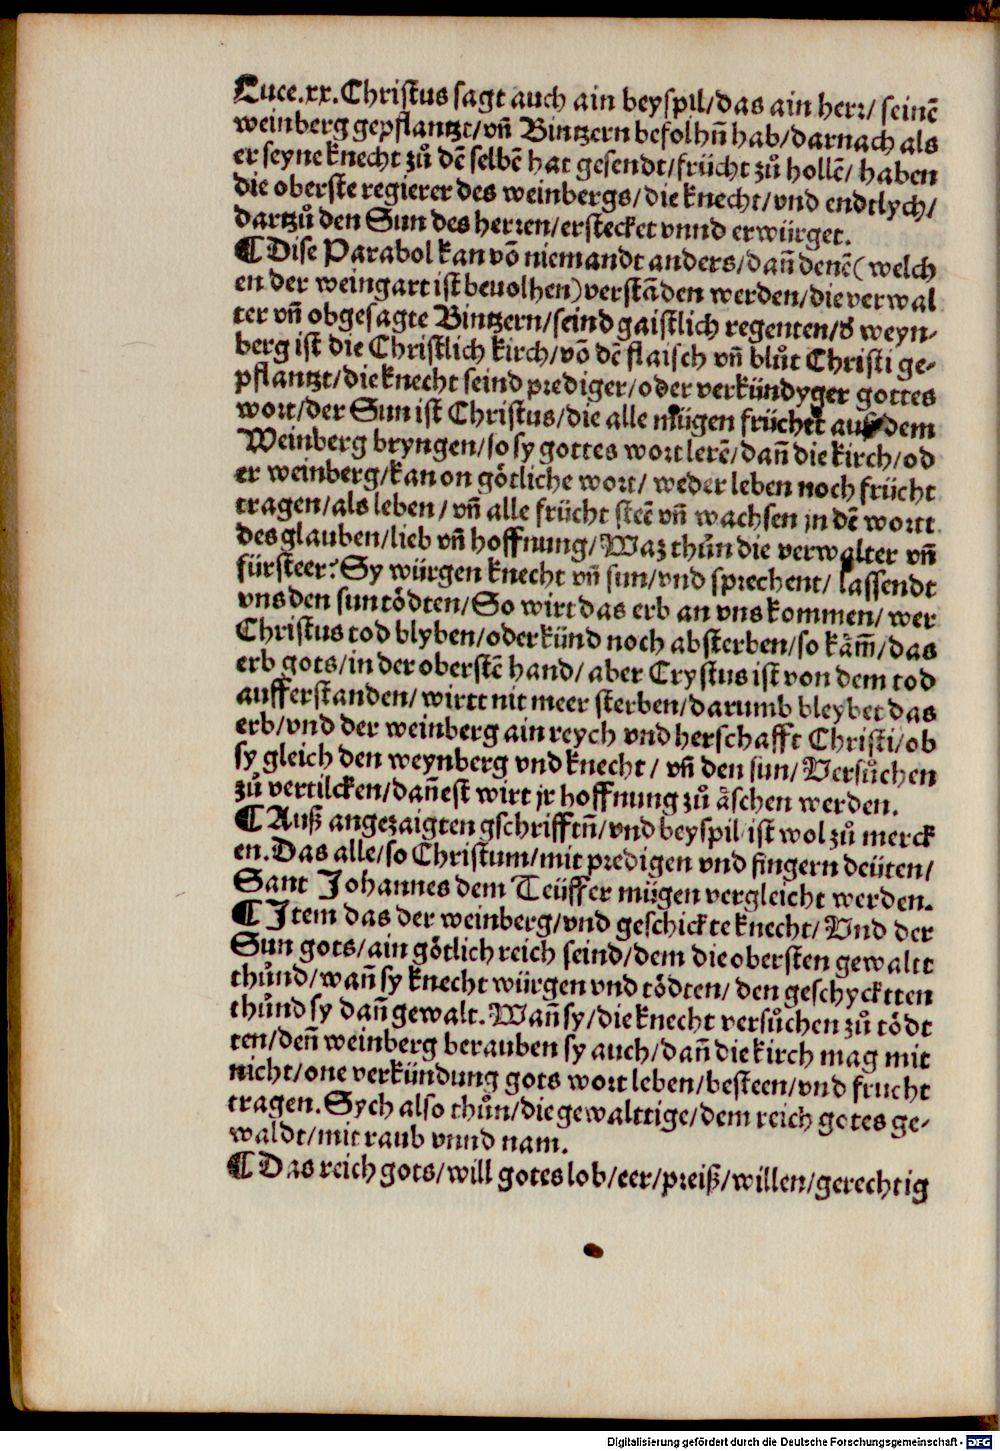 Luce.xx. Christus sagt auch ain beyspil/das ain herr/ seinē
weinberg gepflantzt/vn̄ Bintzern befolhn̄ hab/darnach als
er seyne knecht zů dē selbē hat gesendt/frücht zů hollē/ haben
die oberste regierer des weinbergs/die knecht/vnd endtlych/
dartzů den Sun des herren/erstecket vnnd erwürget.
¶ Dise Parabol kan vō niemandt anders/dan̄ denē (welch
en der weingart ist beuolhen) verstādēn werden/die verwal
ter vn̄ obgesagte Bintzern/seind gaistlich regenten/d̕ weyn⸗
berg ist die Christlich kirch/vō dē flaisch vn̄ blůt Christi ge⸗
pflantzt/die knecht seind prediger/oder verkündyger gottes
wort/der Sun ist Christus/die alle mügen früchet auß dem
Weinberg bryngen/so sy gottes wort lerē/dan̄ die kirch/od
er weinberg/kan on götliche wort/ weder leben noch frücht
tragen/als leben/ vn̄ alle frücht steē vn̄ wachsen jn dē wortt
des glauben/lieb vn̄ hoffnung/Waz thůn die verwalter vn̄
fürsteer? Sy würgen knecht vn̄ sun/vnd sprechent/ lassendt
vns den sun tödten/So wirt das erb an vns kommen/ wer
Christus tod blyben/oder künd noch absterben/so käm̄/das
erb gots/in der oberstē hand/ aber Crystus ist von dem tod
aufferstanden/ wirtt nit meer sterben/darumb bleybet das
erb/vnd der weinberg ain reych vnd herschafft Christi/ob
sy gleich den weynberg vnd knecht/ vn̄ den sun/ Versůchen
zů vertilcken/dan̄est wirt jr hoffnung zů äschen werden.
¶ Auß angezaigten gschrifftn̄/vnd beyspil ist wol zů merck
en. Das alle/so Christum/mit predigen vnd fingern deüten/
Sant Johannes dem Teüffer mügen vergleicht werden.
¶ Item das der weinberg/vnd geschickte knecht/ Vnd der
Sun gots/ain götlich reich seind/dem die obersten gewaltt
thůnd/wan̄ sy knecht würgen vnd tödten/ den geschycktten
thůnd sy dan̄ gewalt. Wan̄ sy/die knecht versůchen zů tödt
ten/den̄ weinberg berauben sy auch/dan̄ die kirch mag mit
nicht/one verkündung gots wort leben/besteen/vnd frucht
tragen. Sych also thůn/die gewalttige/dem reich gotes ge⸗
waldt/mit raub vnnd nam.
¶ Das reich gots/will gotes lob/eer/preiß/willen/gerechtig
Digitalisierung gefördert durch die Deutsche Forschungsgemeinschaft - DFG